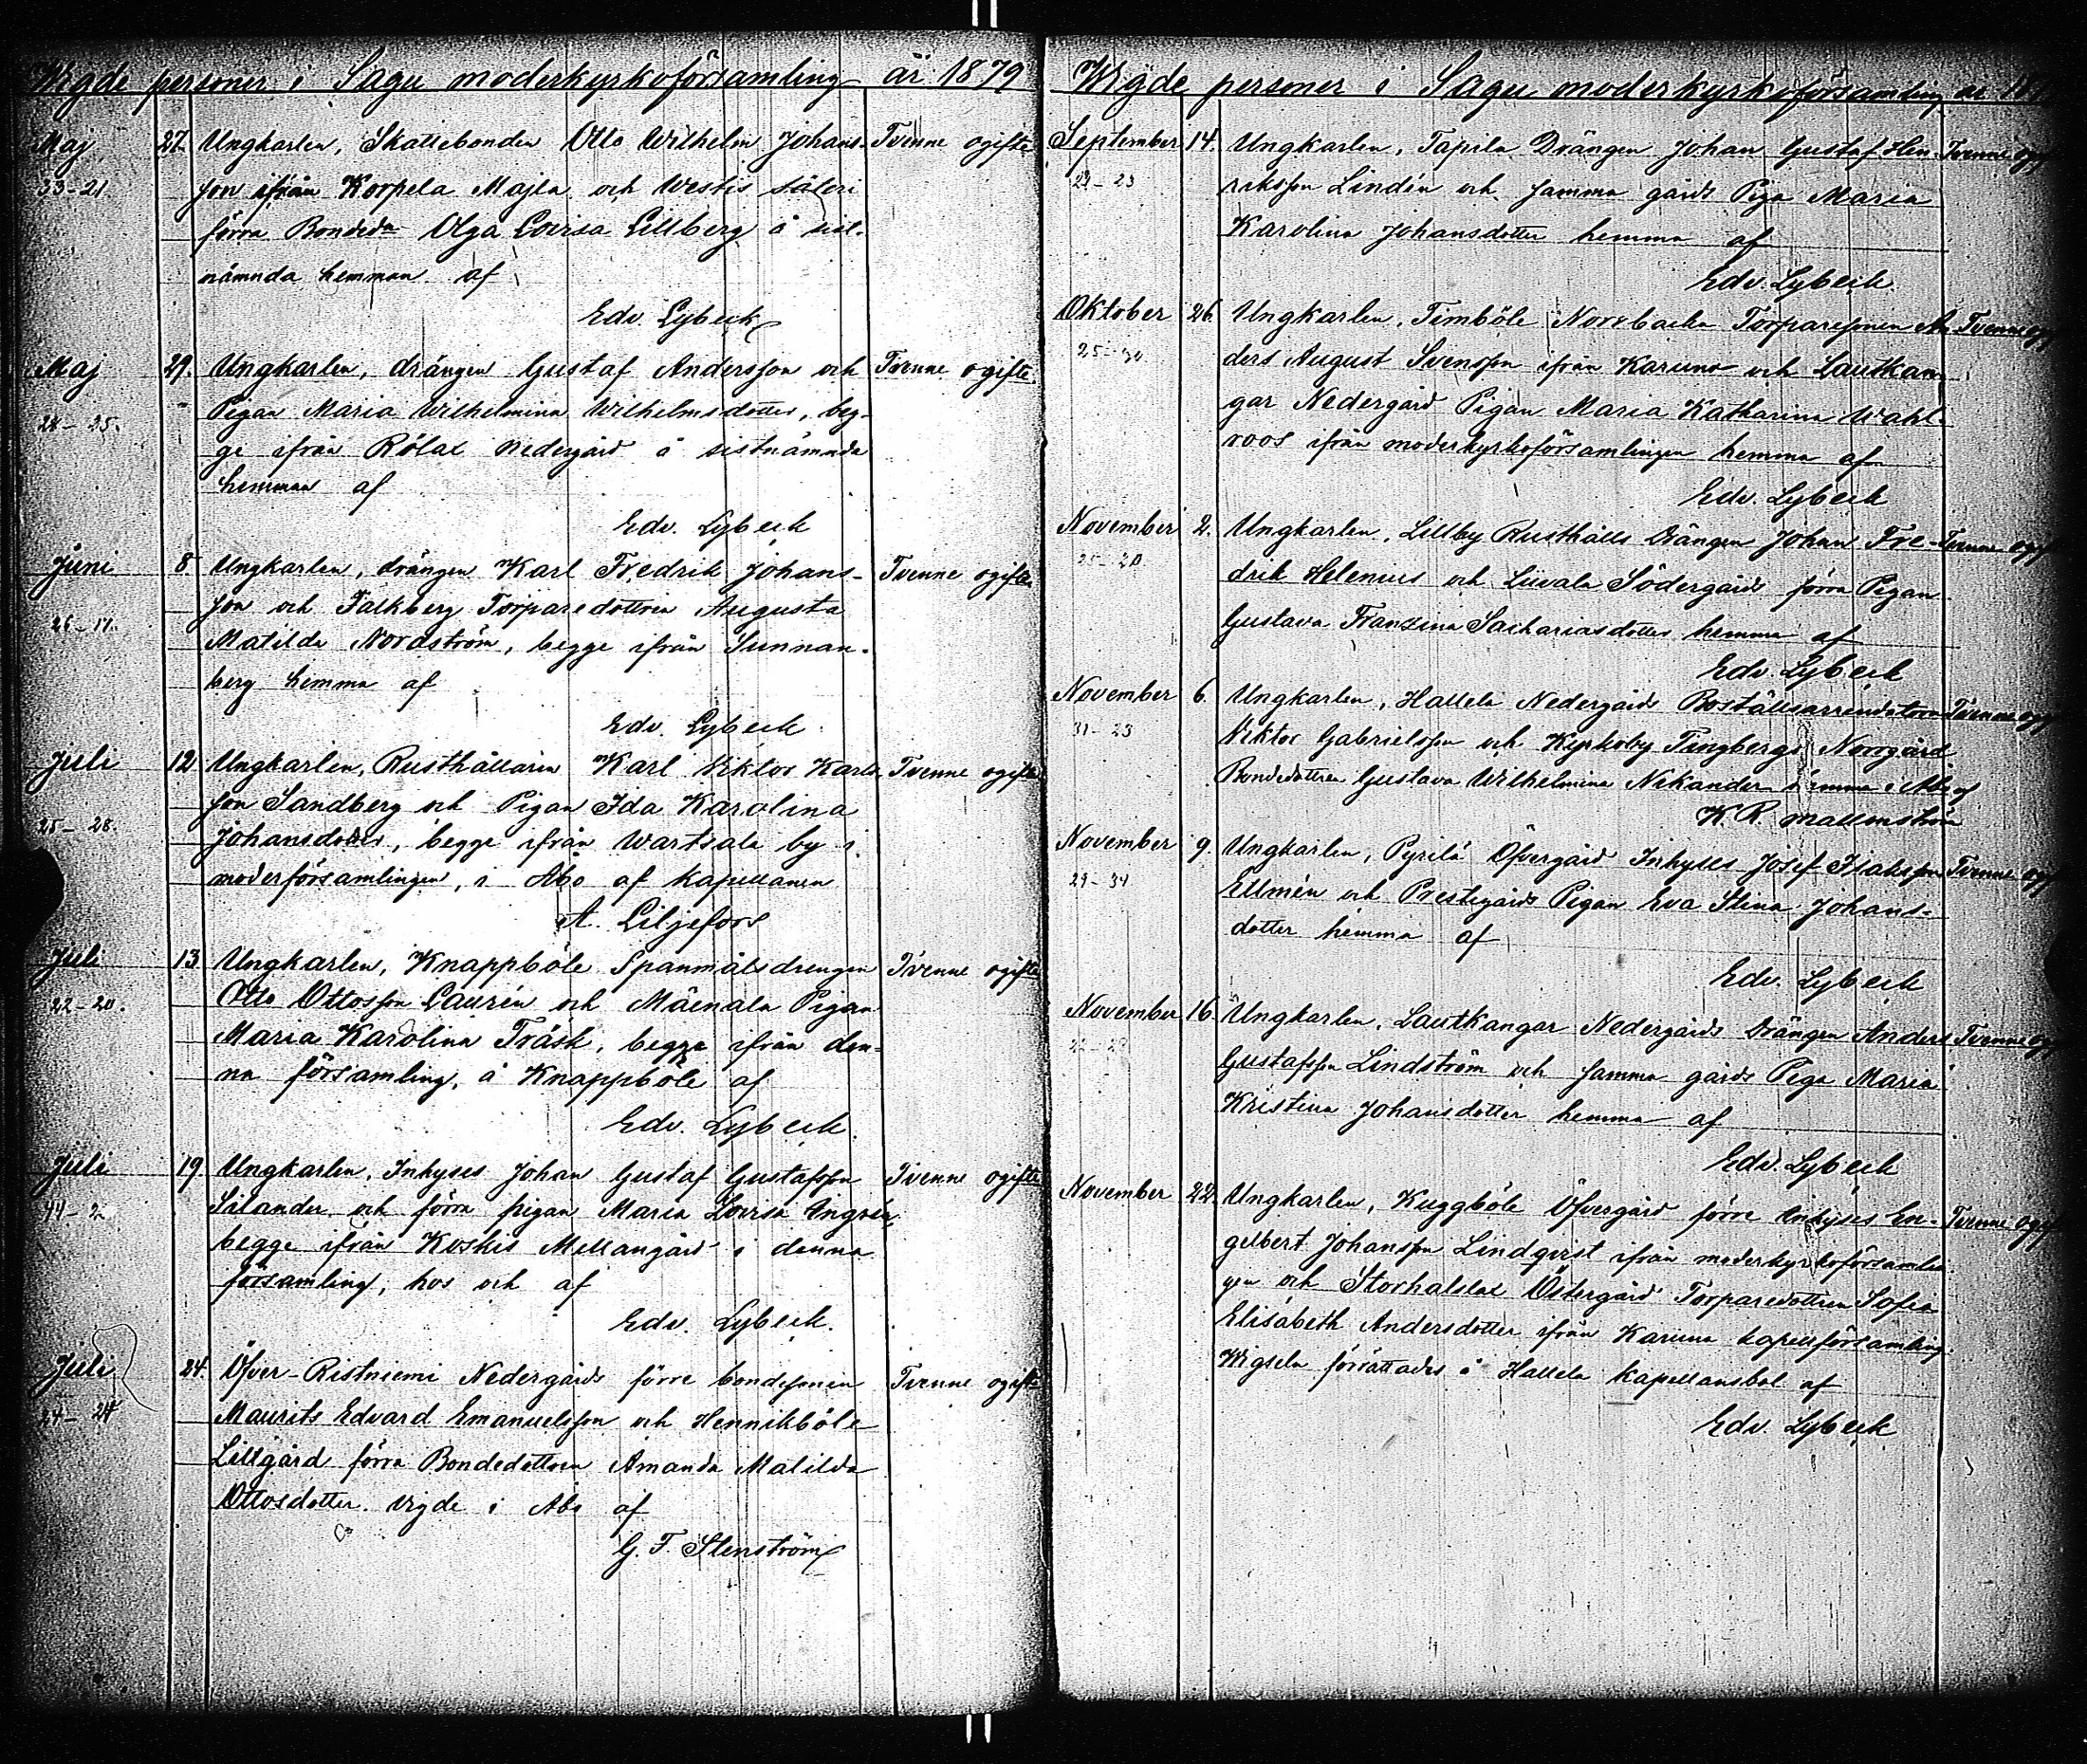 Wigde personer i Sagu moderkyrkoförsamling år 1879
Maj 27. Ungkarlen, Skattebonden Otto Wilhelm Johans- Tvenne ogifte
33-21. son ifrån Korpela Majla och Westis säteri
förra Bonded:n Olga Lovisa Lillberg å sist-
nämnda hemman af
Edv. Lybeck
Maj 29. Ungkarlen, drängen Gustaf Andersson och Tvenne ogifte.
Pigan Maria Wilhelmina Wilhelmsdotter, beg-
ge ifrån Rölax Nedergård å sistnämnda
hemman af
Edv. Lybeck
Juni 8. Ungkarlen, drängen Karl Fredrik Johans- Tvenne ogifte
son och Falkberg Torparedottren Augusta
26-17. Matilda Nordström, begge ifrån Sunnan-
berg hemma af
Edv. Lybeck
Juli 12. Ungkarlen, Rusthållaren Karl Viktor Karls- Tvenne ogifte
son Sandberg och Pigan Ida Karolina
25-28. Johansdotter, begge ifrån Wartsala by i
moderförsamlingen, i Åbo af kapellanen
A. Liljefors
Juli 13. Ungkarlen, Knappböle Spanmålsdrengen Tvenne ogifte
22-20. Otto Ottosson Laurén och Mäenala Pigan
Maria Karolina Träsk, begge ifrån den-
na församling, å Knappböle af
Edv. Lybeck.
Juli 19. Ungkarlen, Inhyses Johan Gustaf Gustafsson Tvenne ogifte
Silander och förra pigan Maria Lovisa Engrén,
begge ifrån Koskis Mellangård i denna
församling, hos och af
Edv. Lybeck.
Juli 24. Öfver-Ristniemi Nedergårds förre bondesonen Tvenne ogifte
24-24 Maurits Edvard Emanuelsson och Hennikböle
Lillgård förra Bondedottren Amanda Matilda
Ottosdotter. Vigde i Åbo af
G. F. Stenström
Wigde personer i Sagu moderkyrkoförsamling år
September 14. Ungkarlen, Tapila Drängen Johan Gustaf Hen- Tvenne
riksson Lindén och samma gårds Piga Maria
Karolina Johansdotter hemma af
Edv. Lybeck
Oktober 26. Ungkarlen, Timböle Norrbacka Torparesonen An- Tvenne
25-30 ders August Svensson ifrån Karuna och Lautkan-
gar Nedergård Pigan Maria Katharina Wahl-
roos ifrån moderkyrkoförsamlingen hemma af
Edv. Lybeck
November 2. Ungkarlen, Lillby Rusthålls Drängen Johan Fre- Tvenne
25-20 drik Helenius och Liuvala Södergårds förra Pigan
Gustava Franzina Sachariasdotter hemma af
Edv. Lybeck
November 6. Ungkarlen, Hallela Nedergårds Boställsarrendatorn Tvenne
31-23 Viktor Gabrielsson och Kyrkoby Tingbergs Norrgård
Bondedottren Gustava Wilhelmina Nikander hemma i Åbo af
K. R. Malmström
November 9. Ungkarlen, Pyrilä Öfvergård Inhyses Josef Isaksson Tvenne
29-34 Ellmén och Prestgårds Pigan Eva Stina Johans-
dotter hemma af
Edv. Lybeck
November 16. Ungkarlen, Lautkangar Nedergårds Drängen Anders Tvenne
Gustafsson Lindström och samma gårds Piga Maria
Kristina Johansdotter hemma af
Edv. Lybeck
November 22. Ungkarlen, Kuggböle Öfvergård förre Inhyses En- Tvenne
gelbert Johansson Lindqvist ifrån moderkyrkoförsamlin-
gen och Storhalslax Östergård Torparedottren Sofia
Elisabeth Andersdotter ifrån Karuna kapellförsamling.
Wigseln förrättades å Hallela kapellansbol af
Edv. Lybeck